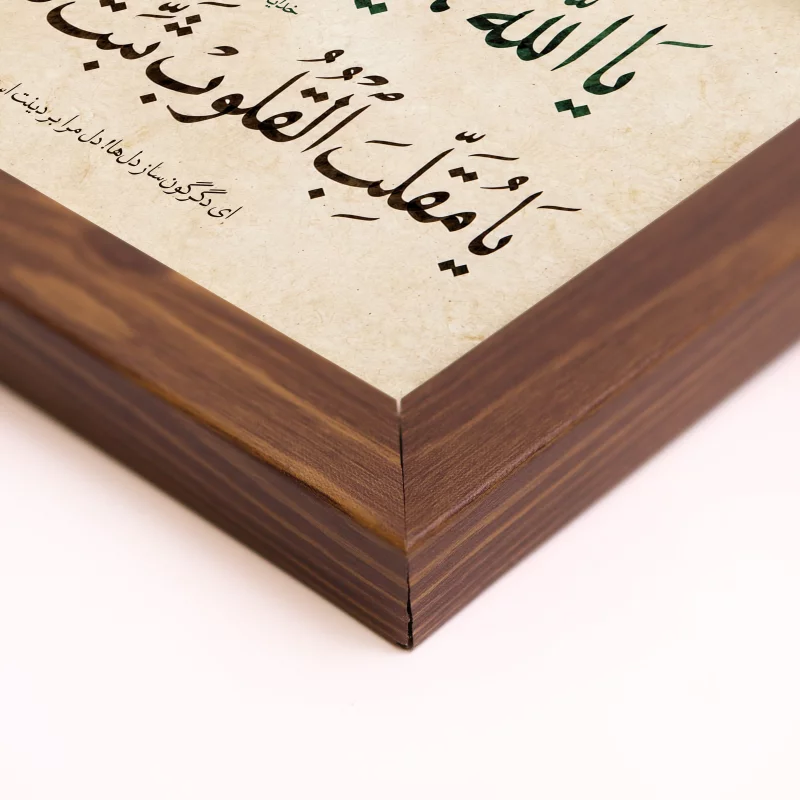 یا الله
خدایا
یا مُقَلِّبَ الْقُلُوبِ ثَبِّتْ
ای دگرگون‌ساز دل‌ها! دل مرا بر دینت